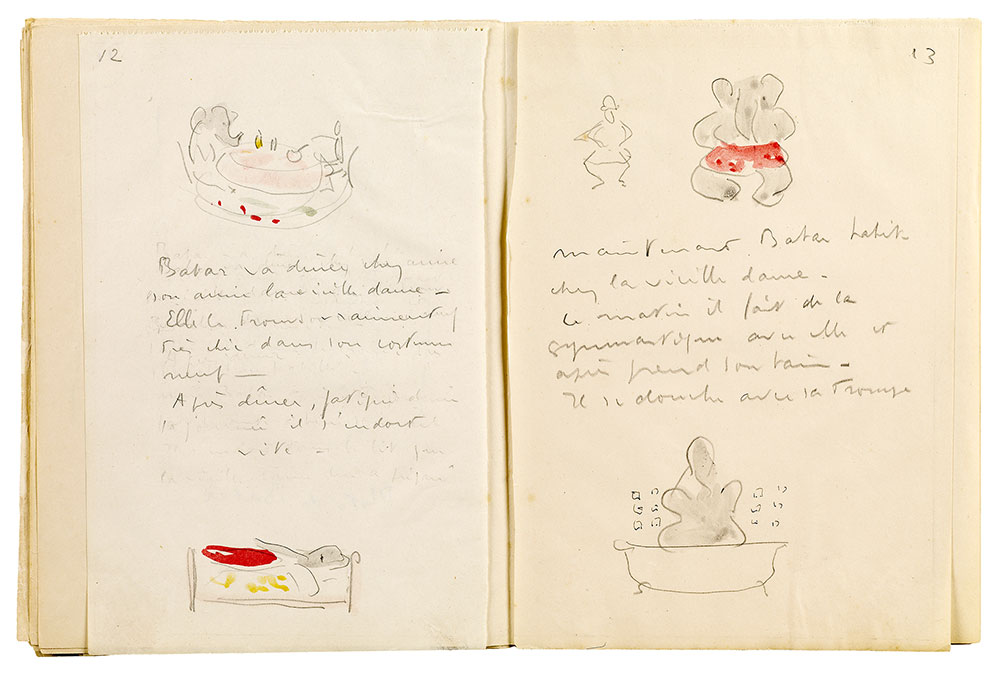 12
Babar va dîner chez
son amie la vieille dame –
Elle le trouve vraiment
très chic dans son costume
neuf –
Après dîner, fatigué
il s'endort
vite
13
maintenant Babar habite
chez la vieille dame –
Le matin il fait de la
gymnastique avec elle et
après prend son bain –
Il se douche avec sa trompe